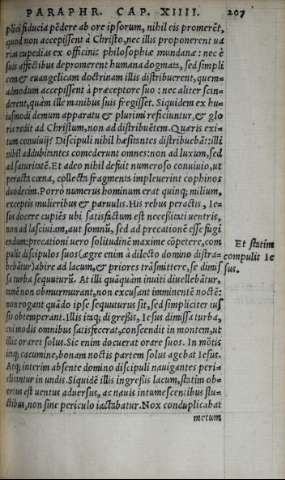 PARAPHR. CAP. XIIII. 207
plici fiducia pēdere ab ore ipsorum, nihil eis promerēt,
quod non accepissent à Christo, nec illis proponerent ua
ria cupeditas ex officinis philosophiæ mundanæ: nec è
suis affectibus depromerent humana dogmata, sed simpli
cem & euangelicam doctrinam illis distribuerent, quem
admodum accepissent à præceptore suo: nec aliter scin
derent, quàm ille manibus suis fregisset. Siquidem ex hu
iusmodi demum apparatu & plurimi reficiuntur, & glo
ria redit ad Christum, non ad distribuētem. Quæris exi
tum conuiuij? Discipuli nihil hæsitantes distribuebāt: illi
nihil addubitantes comederunt omnes: non ad luxum, sed
ad saturitatē. Et adeo nihil defuit numeroso conuiuio, ut
peracta cœna, collecta fragmenta impleuerint cophinos
duodecim. Porrò numerus hominum erat quinq; milium,
exceptis mulieribus & paruulis. His rebus peractis, Ie-
sus docere cupiēs ubi satisfactum est necessitati uentris,
non ad lasciuiam, aut somnū, sed ad precationē esse fugi
endum: precationi uero solitudinē maxime cōpetere, com
pulit discipulos suos (ægre enim à dilecto domino distra-
hebātur) abire ad lacum, & priores trāsmittere, se dimis
sa turba sequuturū. At illi quāquàm inuiti diuellebātur,
tamē non obmurmurant, non excusant imminentē noctē:
non rogant quādo ipse sequuturus sit, sed simpliciter ius
su obtemperant. Illis inq; digressis, Iesus dimissa turba,
cui modis omnibus satisfecerat, conscendit in montem, ut
illic oraret solus. Sic enim docuerat orare suos. In mōtis
inq; cacumine, bonam noctis partem solus agebat Iesus.
Atq; interim absente domino discipuli nauigantes peri-
clitantur in undis. Siquidē illis ingressis lacum, statim ob-
ortus est uentus aduersus, ac nauis intumescentibus flu-
ctibus, non sine periculo iactabatur. Nox conduplicabat
metum
Et statim
compulit Ie
sus.